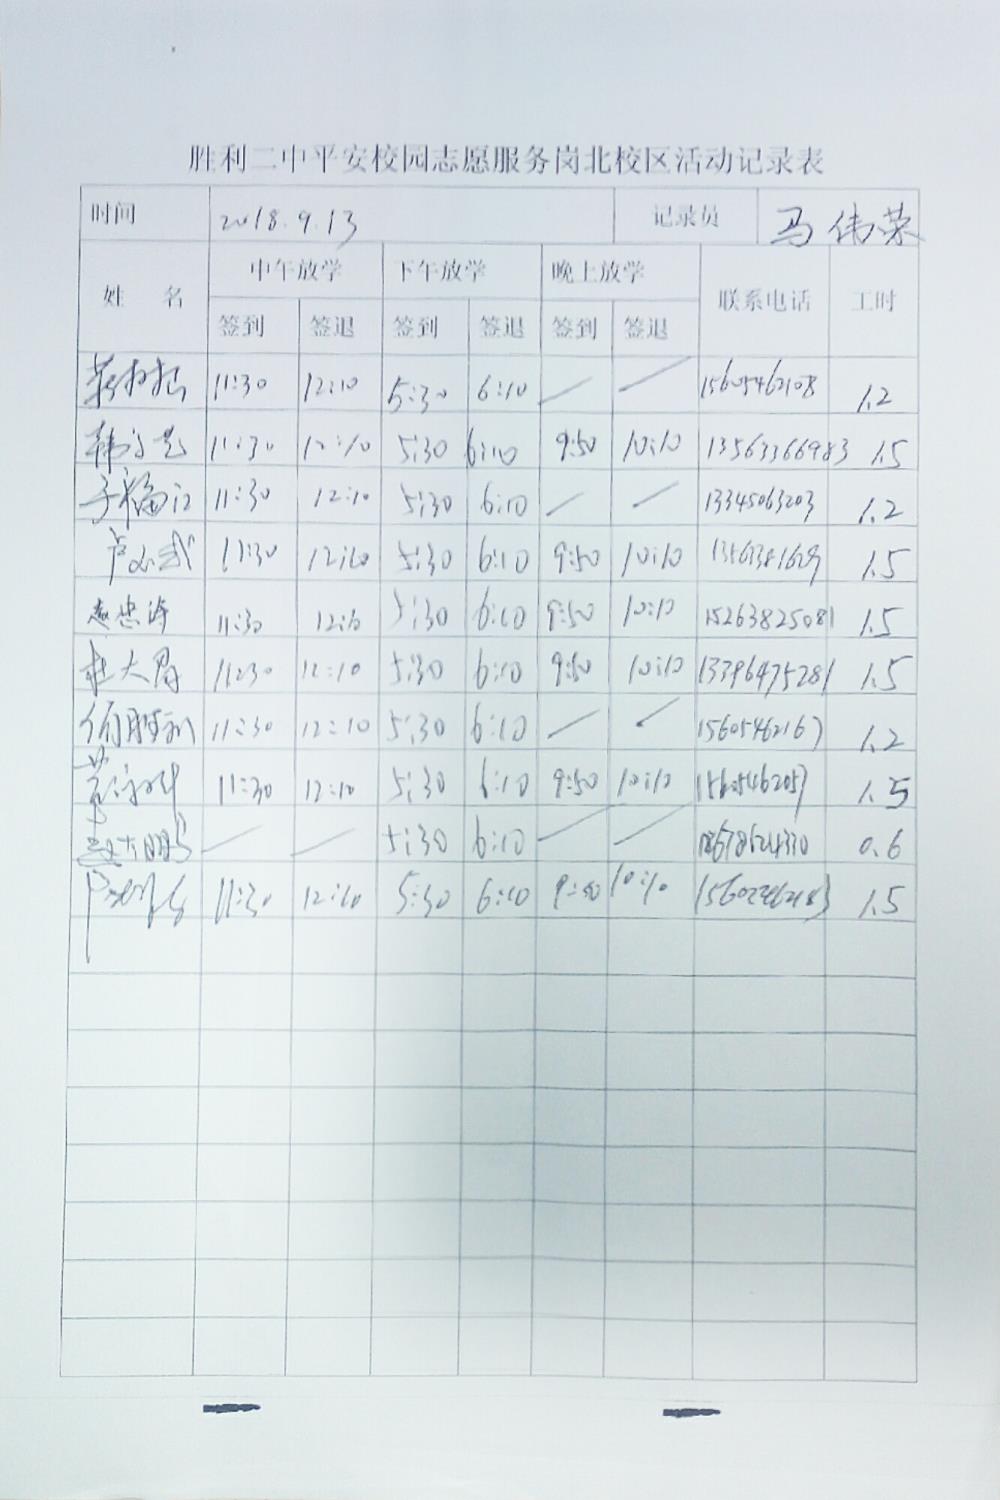 胜利二中平安校园志愿服务岗北校区活动记录表
时间 2018.9.13 记录员 马伟荣
姓 名 中午放学 下午放学 晚上放学 联系电话 工时
签到 签退 签到 签退 签到 签退
11:30 12:10 5:30 6:10 / / 15605462108 1.2
11:30 12:10 5:30 6:10 9:50 10:10 13563366983 1.5
于福江 11:30 12:10 5:30 6:10 / / 13345063203 1.2
11:30 12:10 5:30 6:10 9:50 10:10 1.5
孟忠涛 11:30 12:10 5:30 6:10 9:50 10:10 15263825081 1.5
杜大眉 11:30 12:10 5:30 6:10 9:50 10:10 13396475281 1.5
何胜利 11:30 12:10 5:30 6:10 / / 15605462167 1.2
11:30 12:10 5:30 6:10 9:50 10:10 15605462057 1.5
/ / 5:30 6:10 / / 0.6
11:30 12:10 5:30 6:10 9:50 10:10 1.5